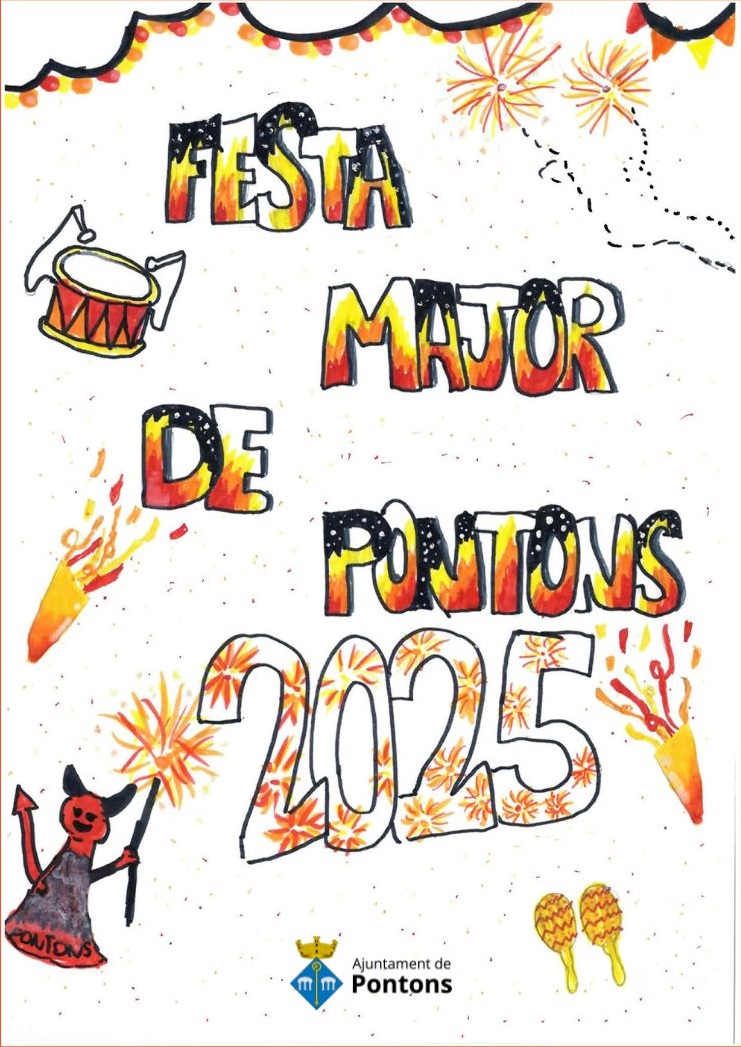 FESTA
MAJOR
DE
PONTONS
2025
PONTONS
Ajuntament de
Pontons